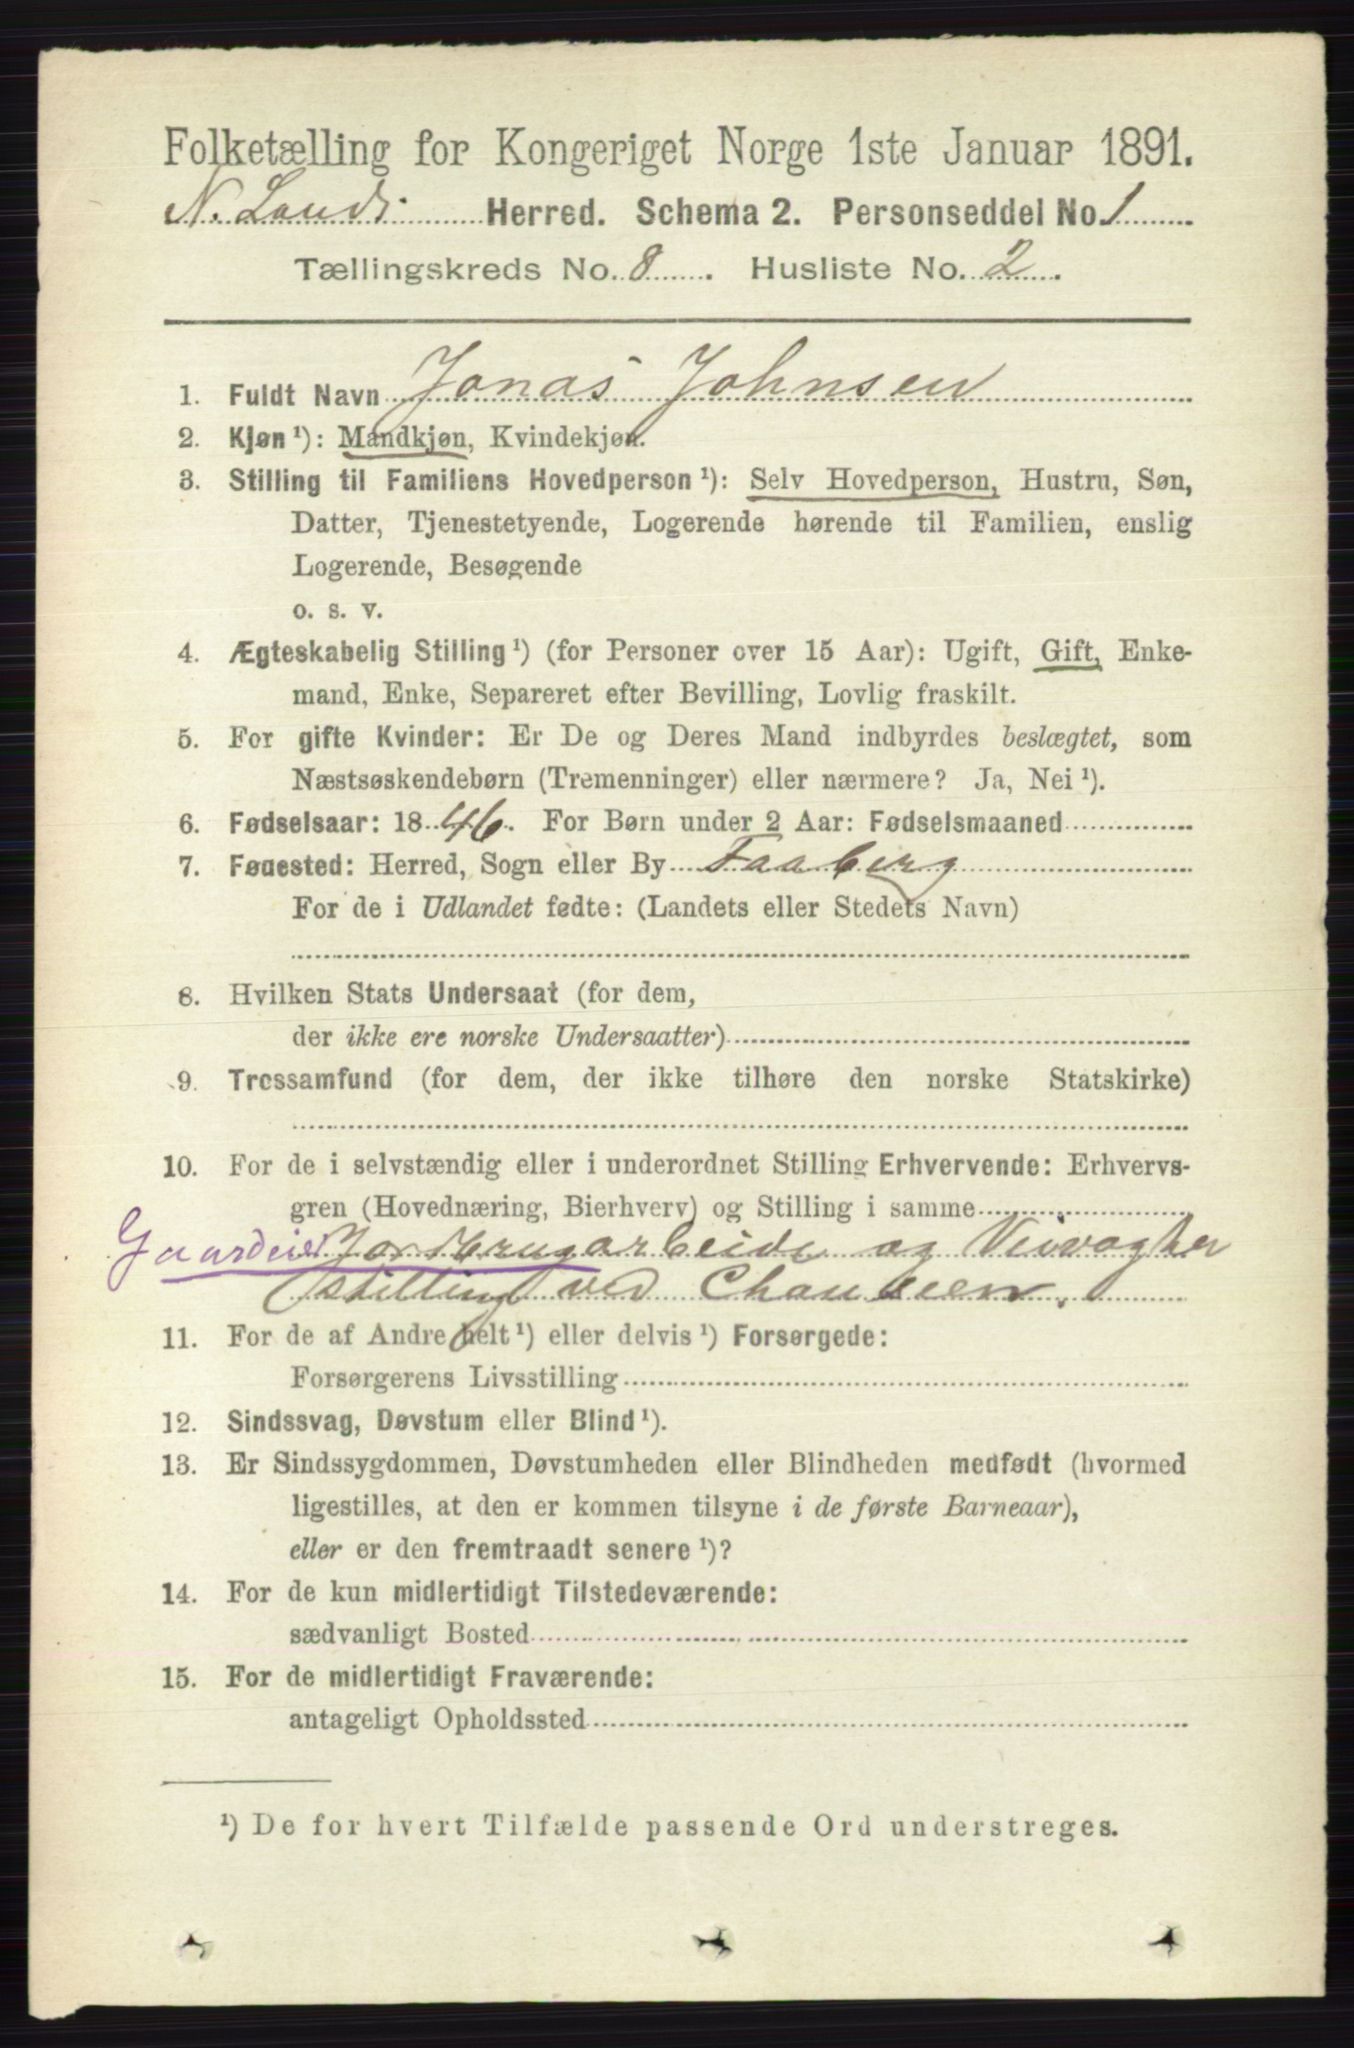 Folketælling for Kongeriget Norge 1ste Januar 1891.
N. Lands Herred. Schema 2. Personseddel No. 1
Tællingskreds No. 8. Husliste No. 2.
1. Fuldt Navn Jonas Johnsen
2. Kjøn ¹): Mandkjøn, Kvindekjøn.
3. Stilling til Familiens Hovedperson ¹): Selv Hovedperson, Hustru, Søn,
Datter, Tjenestetyende, Logerende hørende til Familien, enslig
Logerende, Besøgende
o. s. v.
4. Ægteskabelig Stilling ¹) (for Personer over 15 Aar): Ugift, Gift, Enke-
mand, Enke, Separeret efter Bevilling, Lovlig fraskilt.
5. For gifte Kvinder: Er De og Deres Mand indbyrdes beslægtet, som
Næstsøskendebørn (Tremenninger) eller nærmere? Ja, Nei ¹).
6. Fødselsaar: 1846. For Børn under 2 Aar: Fødselsmaaned
7. Føuested: Herred, Sogn eller By Faaberg
For de i Udlandet fødte: (Landets eller Stedets Navn)
8. Hvilken Stats Undersaat (for dem,
der ikke ere norske Undersaatter)
9. Trossamfund (for dem, der ikke tilhøre den norske Statskirke)
10. For de i selvstændig eller i underordnet Stilling Erhvervende: Erhvervs-
gren (Hovednæring, Bierhverv) og Stilling i samme
Gaardeier Jordbrugarbeide og Veivogter
stilling ved Chauseen.
11. For de af Andre helt ¹) eller delvis ¹) Forsørgede:
Forsørgerens Livsstilling
12. Sindssvag, Døvstum eller Blind ¹).
13. Er Sindssygdommen, Døvstumheden eller Blindheden medfødt (hvormed
ligestilles, at den er kommen tilsyne i de første Barneaar),
eller er den fremtraadt senere ¹)?
14. For de kun midlertidigt Tilstedeværende:
sædvanligt Bosted
15. For de midlertidigt Fraværende:
antageligt Opholdssted
¹) De for hvert Tilfælde passende Ord understreges.